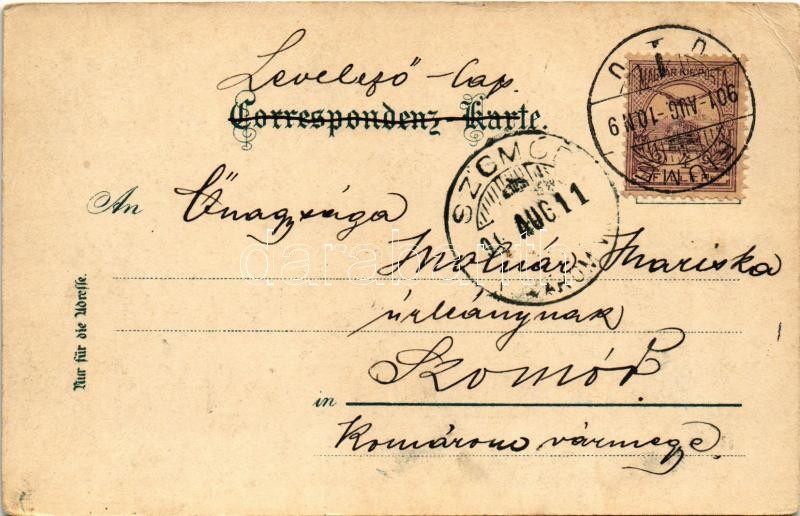 Levelező-Lap.
Correspondenz-Karte.
MAGYAR KIR. POSTA
901 AUG. 10. N 9
SZOMÓD
01 AUG 11
An Őnagysága
Molnár Mariska
úrleánynak
in Szomód.
Komárom vármegye.
Nur für die Adresse.
darabanth.com